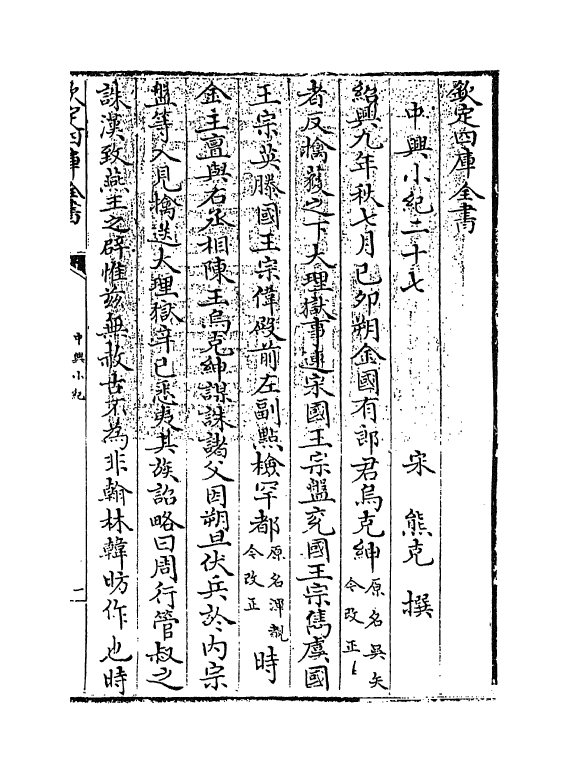 欽定四庫全書
中興小紀二十七
宋 熊克 撰
紹興九年秋七月己卯朔金國有郎君烏克紳原名吳矢今改正
者反擒獲之下大理獄事連宋國王宗盤兖國王宗雋虞國
王宗英滕國王宗偉殿前左副點檢罕都原名渾覩今改正時
金主亶與右丞相陳王烏克紳謀誅諸父因朔旦伏兵於内宗
盤等入見擒送大理獄辛巳悉夷其族詔略曰周行管叔之
誅漢致燕王之辟惟兹無赦古不為非翰林韓昉作也時
欽定四庫全書
中興小紀